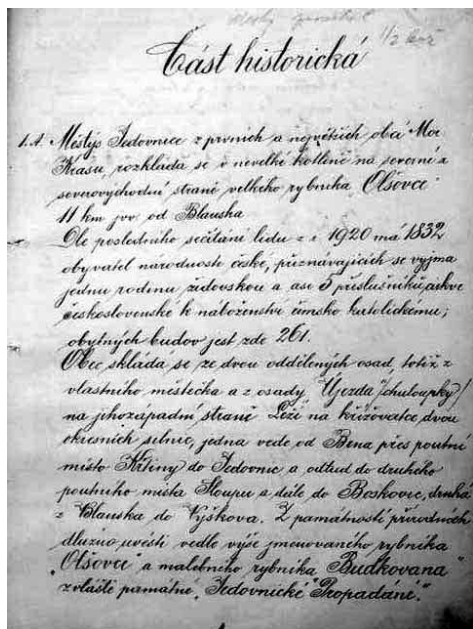 1/2
Část historická
1. A. Městýs Jedovnice z prvních a největších obcí Mor.
Krasu, rozkládá se v nevelké kotlině na severní a
severovýchodní straně velkého rybníka Olšovce
11 km jv. od Blanska
Dle posledního sečítání lidu z r. 1920 má 1832
obyvatel národnosti české, přiznávajících se vyjma
jednu rodinu židovskou a asi 5 příslušníků církve
československé k náboženství římsko katolickému;
obytných budov jest zde 261.
Obec skládá se ze dvou oddělených osad, totiž z
vlastního městečka a z osady Újezda /chaloupky/
na jihozápadní straně. Leží na křižovatce dvou
okresních silnic, jedna vede od Brna přes poutní
místo Křtiny do Jedovnic a odtud do druhého
poutního místa Sloupu a dále do Boskovic, druhá
z Blanska do Vyškova. Z památností přírodních
dlužno uvésti vedle výše jmenovaného rybníka
"Olšovce" a malebného rybníka "Budkovana"
zvláště památné "Jedovnické Propadání."